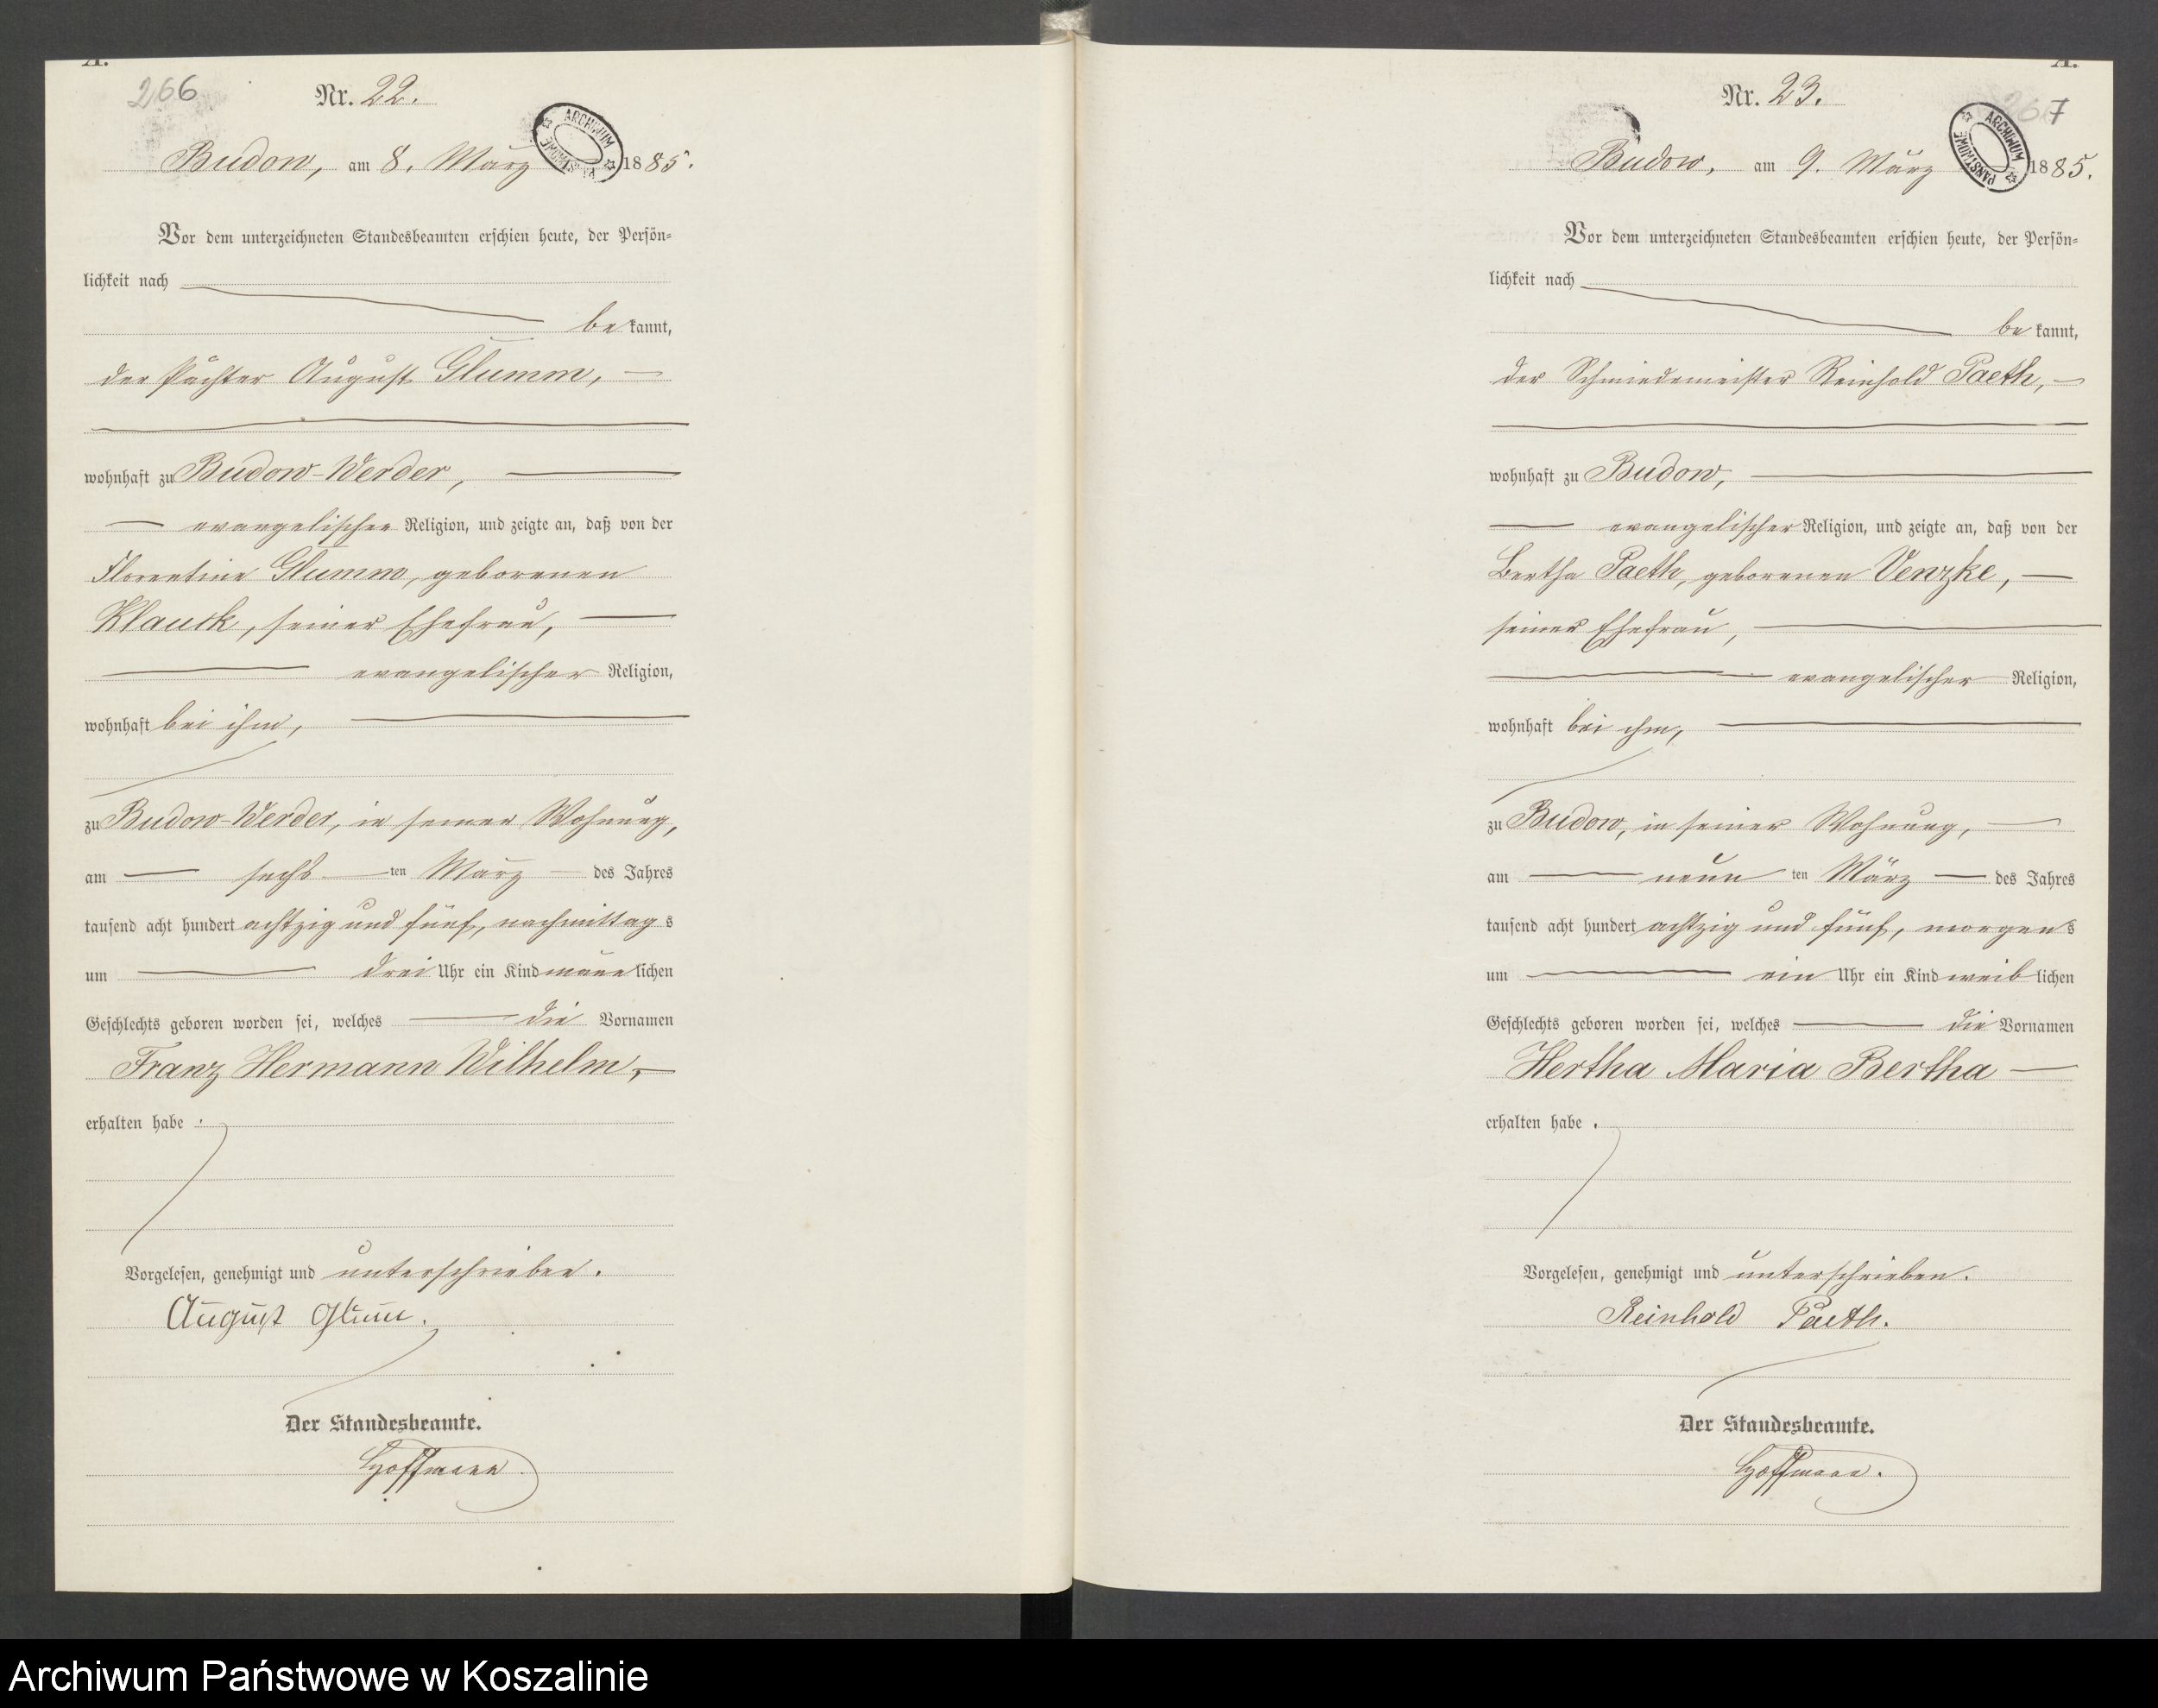 A.
266
Nr. 22.
Budow, am 8. März 1885.
ARCHIWUM PAŃSTWOWE
Vor dem unterzeichneten Standesbeamten erschien heute, der Persön-
lichkeit nach
be kannt,
der Pächter August Glumm,
wohnhaft zu Budow-Werder,
evangelischer Religion, und zeigte an, daß von der
Florentine Glumm, geborenen
Klauck, seiner Ehefrau,
evangelischer Religion,
wohnhaft bei ihm,
zu Budow-Werder, in seiner Wohnung,
am sechs ten März des Jahres
tausend acht hundert achtzig und fünf, nachmittag s
um drei Uhr ein Kind männ lichen
Geschlechts geboren worden sei, welches die Vornamen
Franz Hermann Wilhelm,
erhalten habe.
Vorgelesen, genehmigt und unterschrieben.
August Glum.
Der Standesbeamte.
Hoffmann.
A.
267
Nr. 23.
Budow, am 9. März 1885.
ARCHIWUM PAŃSTWOWE
Vor dem unterzeichneten Standesbeamten erschien heute, der Persön-
lichkeit nach
be kannt,
der Schmiedemeister Reinhold Paeth,
wohnhaft zu Budow,
evangelischer Religion, und zeigte an, daß von der
Bertha Paeth, geborenen Venzke,
seiner Ehefrau,
evangelischer Religion,
wohnhaft bei ihm,
zu Budow, in seiner Wohnung,
am neun ten März des Jahres
tausend acht hundert achtzig und fünf, morgen s
um ein Uhr ein Kind weib lichen
Geschlechts geboren worden sei, welches die Vornamen
Hertha Maria Bertha
erhalten habe.
Vorgelesen, genehmigt und unterschrieben.
Reinhold Paeth.
Der Standesbeamte.
Hoffmann.
Archiwum Państwowe w Koszalinie